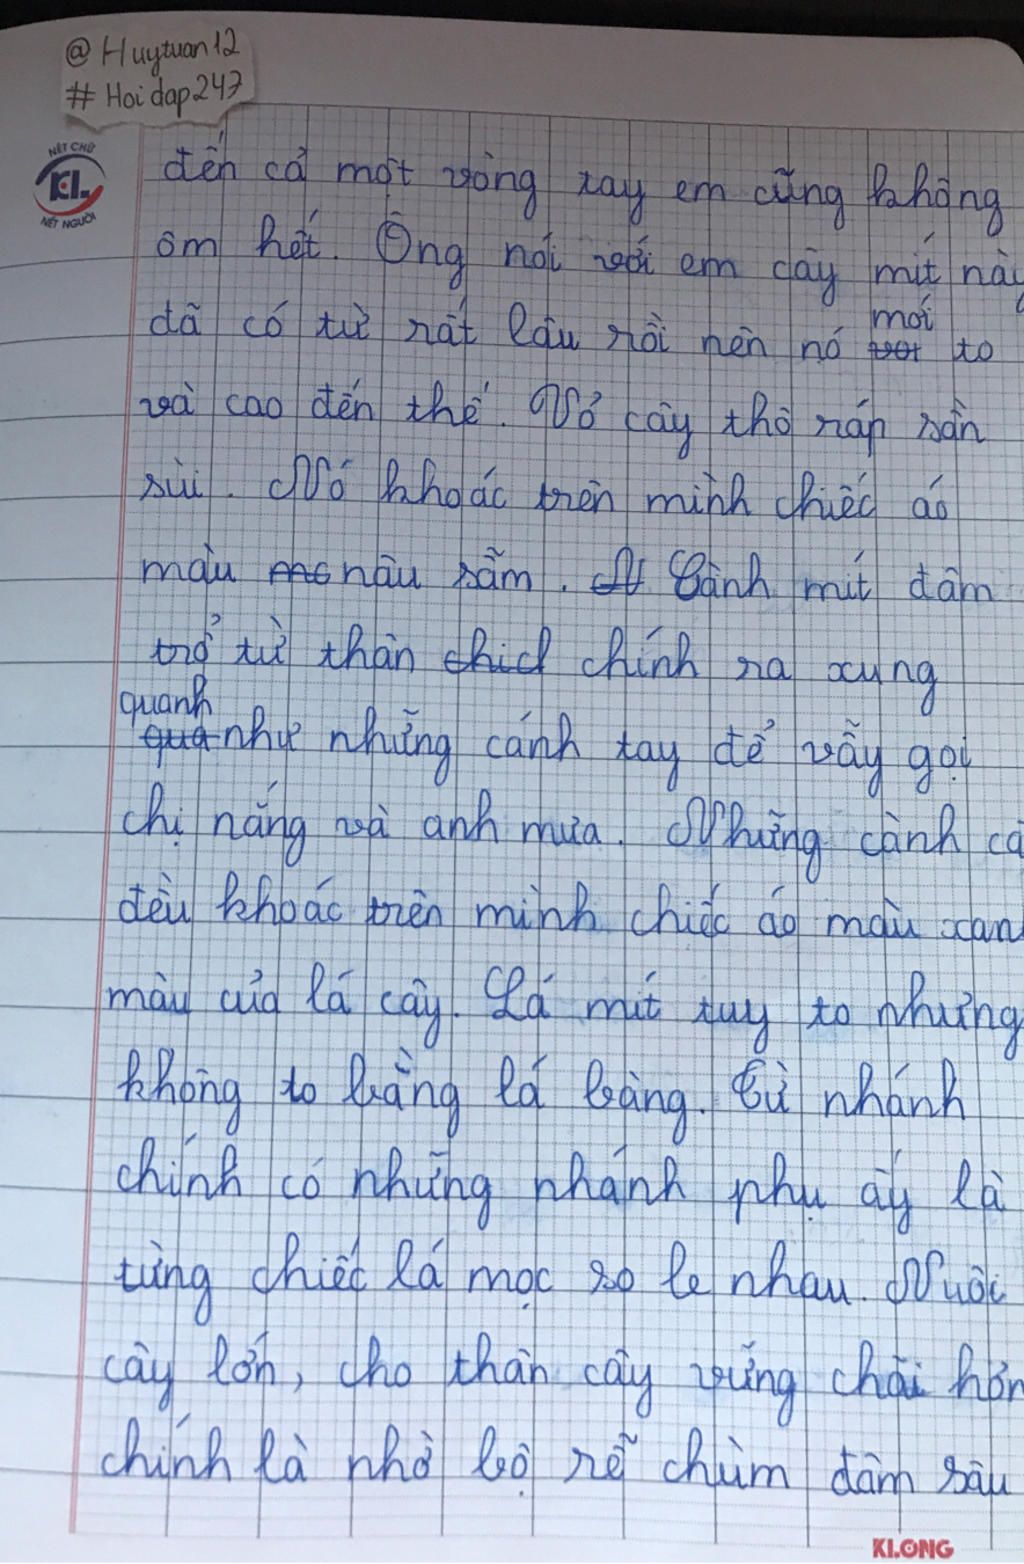 @Huytuan12
#Hoidap247
NÉT CHỮ
KL
NẾT NGƯỜI
đến cả một vòng tay em cũng không
ôm hết. Ông nói với em cây mít này
đã có từ rất lâu rồi nên nó mới to
và cao đến thế. Vỏ cây thô ráp sần
sùi. Nó khoác trên mình chiếc áo
màu nâu sẫm. Cành mít đâm
trổ từ thân chính ra xung
quanh như những cánh tay để vẫy gọi
chị nắng và anh mưa. Những cành cà
đều khoác trên mình chiếc áo màu xan
màu của lá cây. Lá mít tuy to nhưng
không to bằng lá bàng. Từ nhánh
chính có những nhánh phụ ấy là
từng chiếc lá mọc so le nhau. Nuôi
cây lớn, cho thân cây vững chãi hơn
chính là nhờ bộ rễ chùm đâm sâu
KLONG